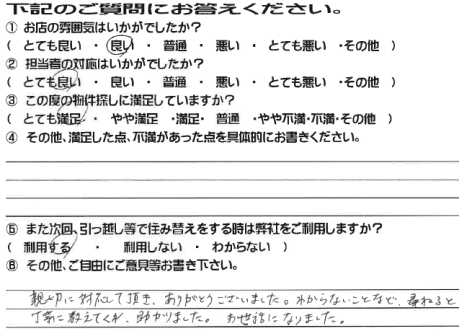 下記のご質問にお答えください。
① お店の雰囲気はいかがでしたか?
( とても良い ・ 良い ・ 普通 ・ 悪い ・ とても悪い ・その他 )
② 担当者の対応はいかがでしたか?
( とても良い ・ 良い ・ 普通 ・ 悪い ・ とても悪い ・その他 )
③ この度の物件探しに満足していますか?
( とても満足 ・ やや満足 ・満足・ 普通 ・やや不満・不満・その他 )
④ その他、満足した点、不満があった点を具体的にお書きください。
⑤ また次回、引っ越し等で住み替えをする時は弊社をご利用しますか?
( 利用する ・ 利用しない ・ わからない )
⑥ その他、ご自由にご意見等お書き下さい。
親切に対応して頂き、ありがとうございました。わからないことなど、尋ねると
丁寧に教えてくれ、助かりました。お世話になりました。